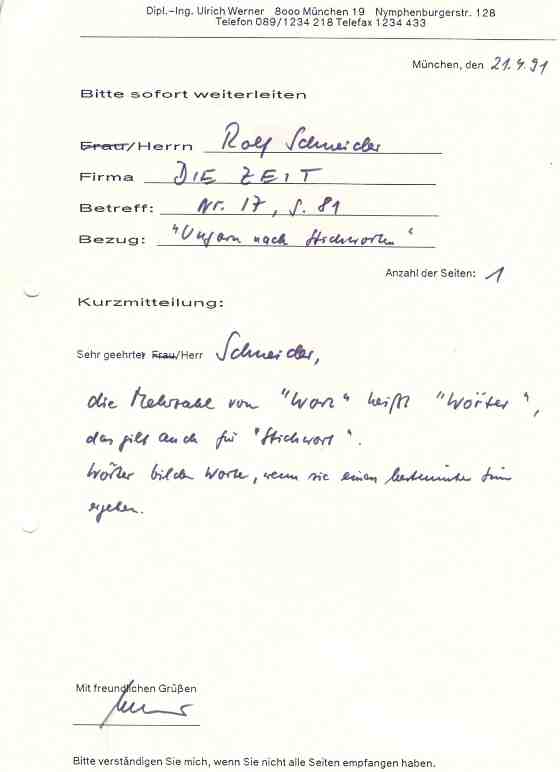 Dipl.-Ing. Ulrich Werner 8000 München 19 Nymphenburgerstr. 128
Telefon 089/1234 218 Telefax 1234 433
München, den 21.4.91
Bitte sofort weiterleiten
Frau/Herrn Rolf Schneider
Firma DIE ZEIT
Betreff: Nr. 17, S. 81
Bezug: "Ungarn nach Stichworten"
Anzahl der Seiten: 1
Kurzmitteilung:
Sehr geehrter Frau/Herr Schneider,
die Mehrzahl von "Wort" heißt "Wörter",
das gilt auch für "Stichwort".
Wörter bilden Worte, wenn sie einen bestimmten Sinn
ergeben.
Mit freundlichen Grüßen
Bitte verständigen Sie mich, wenn Sie nicht alle Seiten empfangen haben.